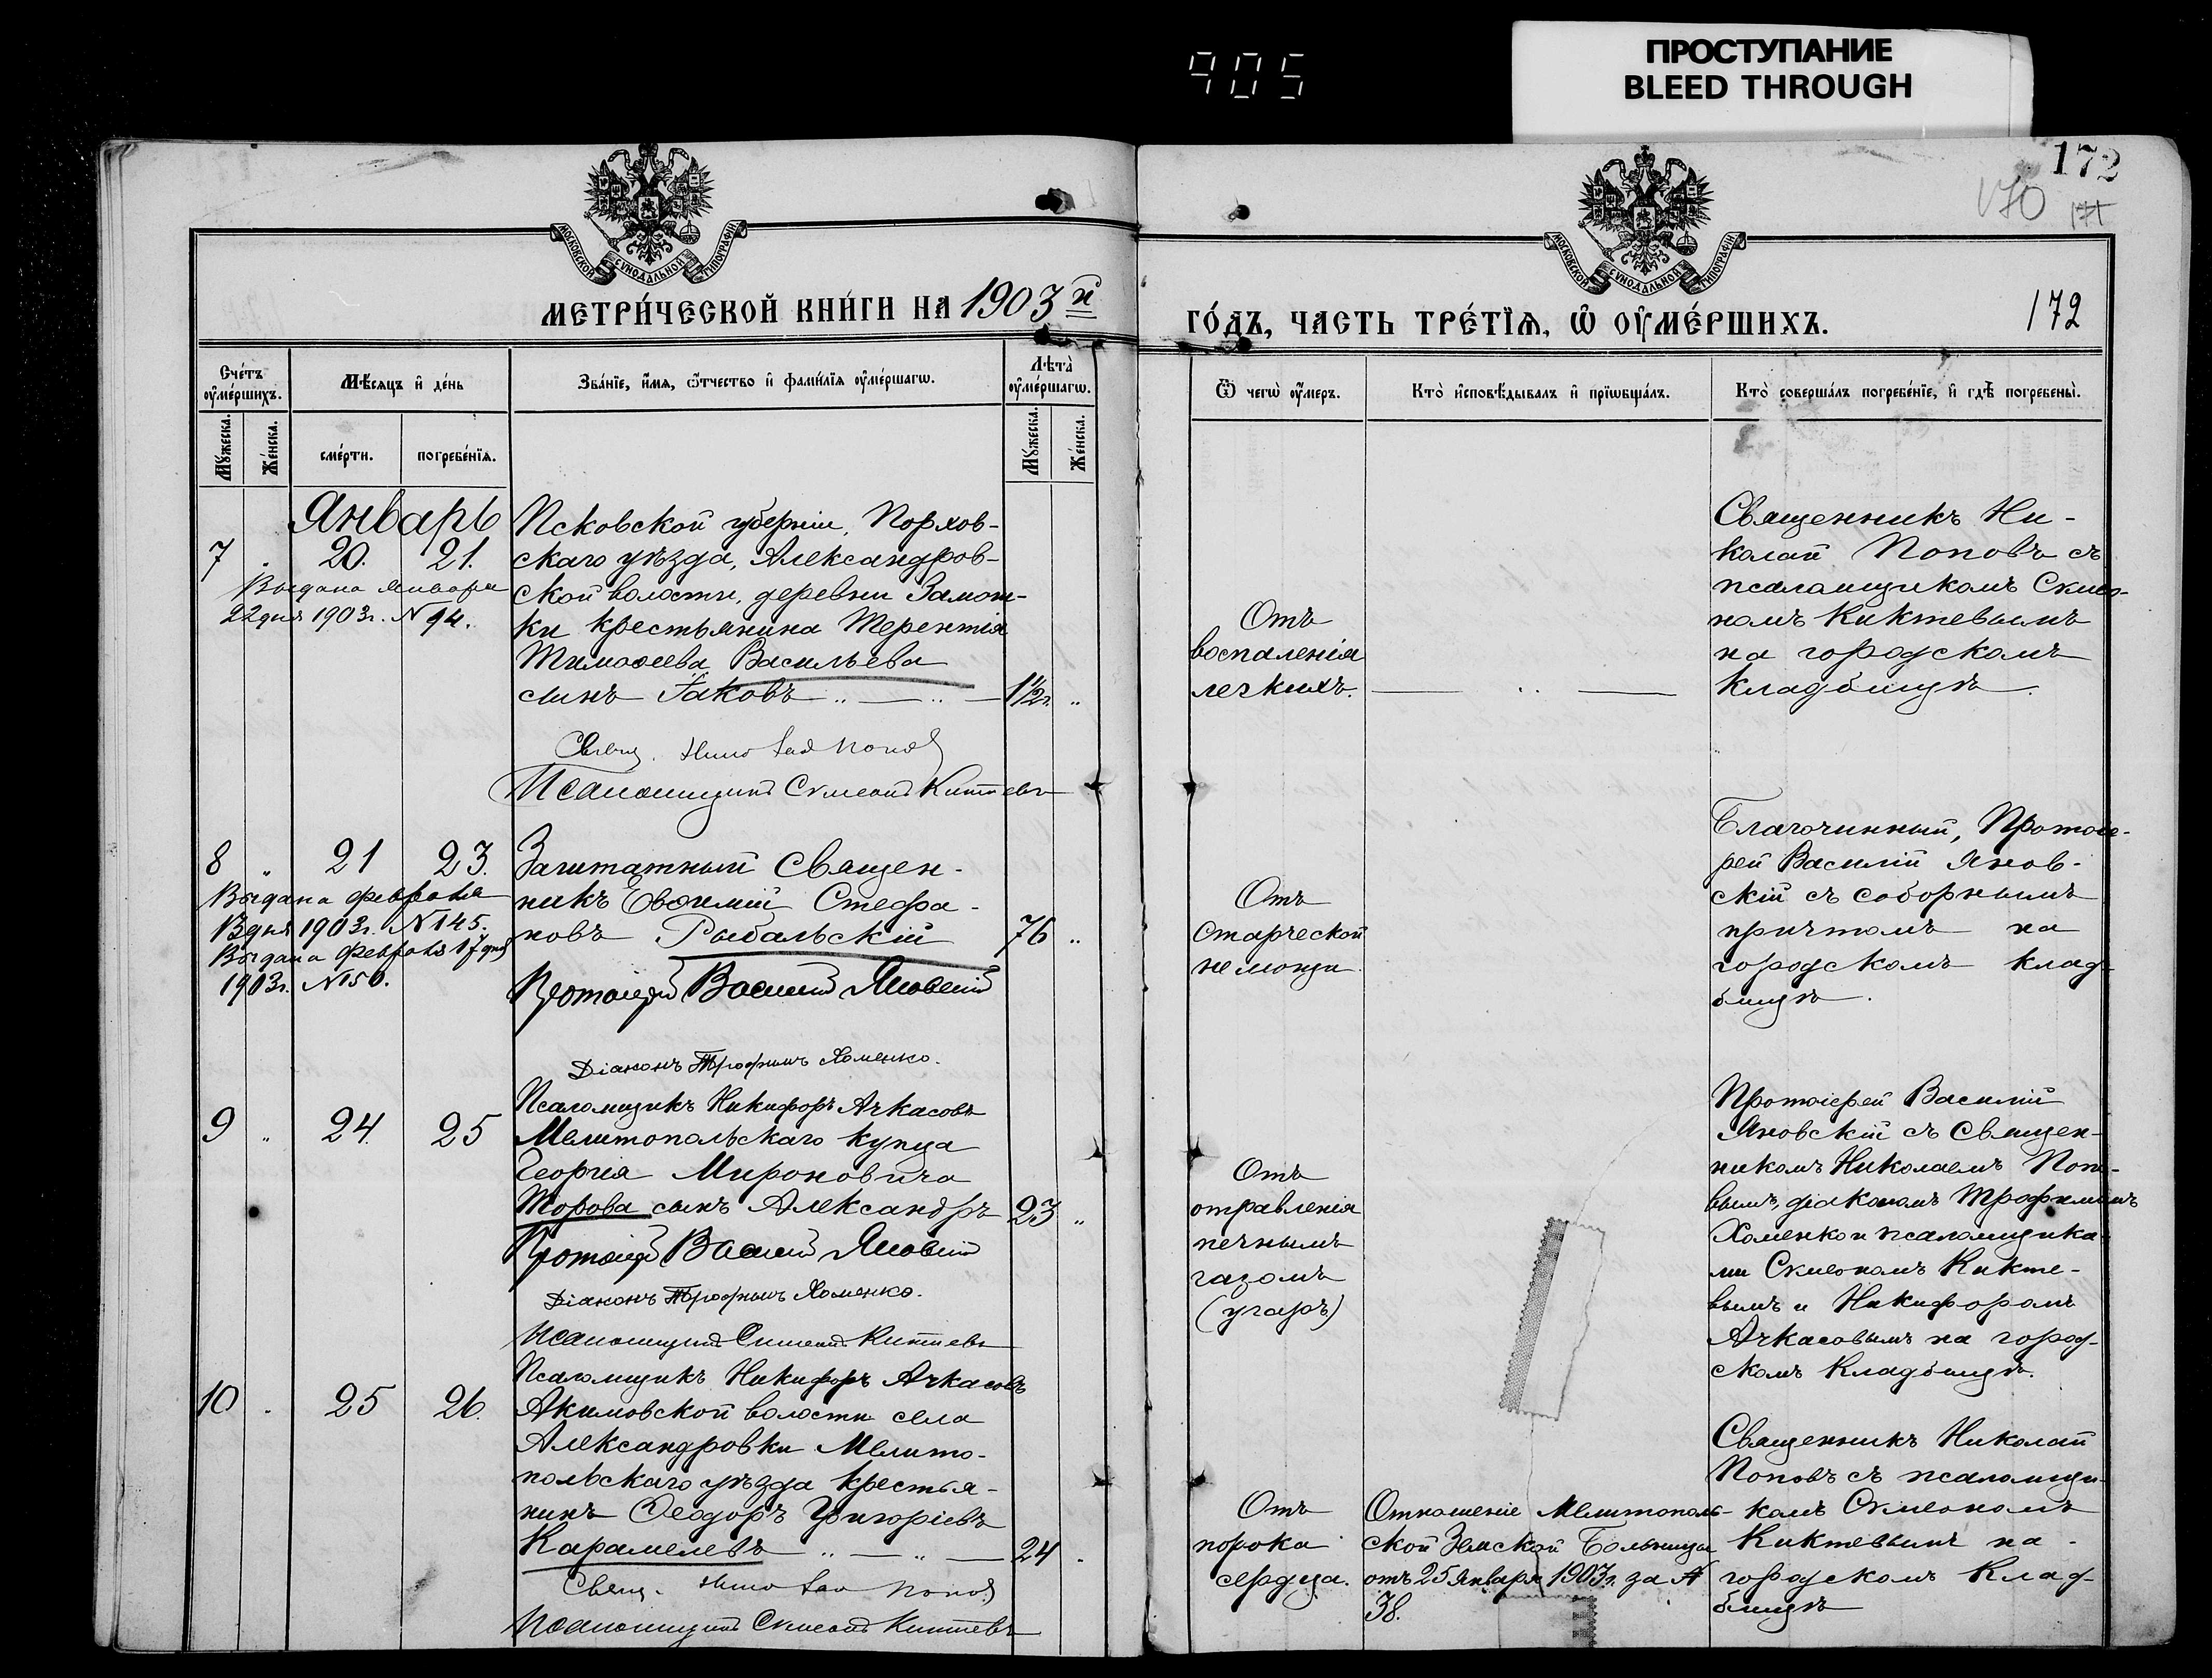 905
ПРОСТУПАНИЕ
BLEED THROUGH
172
170
171
МОСКОВСКОЙ СѴНОДАЛЬНОЙ ТИПОГРАФІИ
МОСКОВСКОЙ СѴНОДАЛЬНОЙ ТИПОГРАФІИ
МЕТРИ́ЧЕСКОЙ КНИ́ГИ НА 1903 й
ГО́ДЪ, ЧАСТЬ ТРЕ́ТЇѦ, Ѽ ОУ҆МЕ́РШИХЪ.
172
Сче́тъ оу҆ме́ршихъ.
Мѣ́сяцъ и҆ де́нь
Зва́нїе, и҆́мя, ѻ҆́тчество и҆ фами́лїя оу҆ме́ршагѡ.
Лѣта̀ оу҆ме́ршагѡ.
Ѿ чегѡ̀ оу҆́меръ.
Кто̀ и҆сповѣ́дывалъ и҆ прїѡбща́лъ.
Кто̀ соверша́лъ погребе́нїе, и҆ гдѣ̀ погребены̀.
Мꙋ́жеска.
Же́нска.
сме́рти.
погребе́нїя.
Мꙋ́жеска.
Же́нска.
Январь
7 20. 21.
Выдана января
22 дня 1903 г. N 94.
Псковской губерніи, Порхов-
скаго уѣзда, Александров-
ской волости, деревни Замош-
ки крестьянина Терентія
Тимоѳеева Васильева
сынъ Іаковъ 1½ г.
Свящ. Николай Попов
Псаломщикъ Симеонъ Киктевъ
Отъ
воспаленія
легкихъ.
Священникъ Ни-
колай Поповъ съ
псаломщикомъ Симео-
номъ Киктевымъ
на городскомъ
кладбищѣ.
8 " 21 23.
Выдана февраля
13 дня 1903 г. N 145.
Выдана Февраля 17 дня
1903 г. N 150.
Заштатный Священ-
никъ Евѳимій Стефа-
новъ Рыбальскій 76 "
Протоіерей Василій Яновскій
Діаконъ Трофимъ Хоменко.
Псаломщикъ Никифоръ Ачкасовъ
Отъ
старческой
немощи.
Благочинный, Протоіе-
рей Василій Янов-
скій съ соборнымъ
причтомъ на
городскомъ клад-
бищѣ.
9 " 24. 25
Мелитопольскаго купца
Георгія Мироновича
Торова сынъ Александръ 23 "
Протоіерей Василій Яновскій
Діаконъ Трофимъ Хоменко.
Псаломщикъ Симеонъ Киктевъ
Псаломщикъ Никифоръ Ачкасовъ
Отъ
отравленія
печнымъ
газомъ
(угаръ)
Протоіерей Василій
Яновскій съ Священ-
никомъ Николаемъ Попо-
вымъ, діакономъ Трофимомъ
Хоменко и псаломщика-
ми Симеономъ Кикте-
вымъ и Никифоромъ
Ачкасовымъ на город-
скомъ кладбищѣ.
10 25 26.
Акимовской волости села
Александровки Мелито-
польскаго уѣзда крестья-
нинъ Ѳеодоръ Григоріевъ
Карамелевъ 24
Свящ. Николай Попов
Псаломщикъ Симеонъ Киктевъ
Отъ
порока
сердца.
Отношеніе Мелитополь-
ской Земской Больницы
отъ 25 января 1903 г. за №
38.
Священникъ Николай
Поповъ съ псаломщи-
комъ Симеономъ
Киктевымъ на
городскомъ клад-
бищѣ